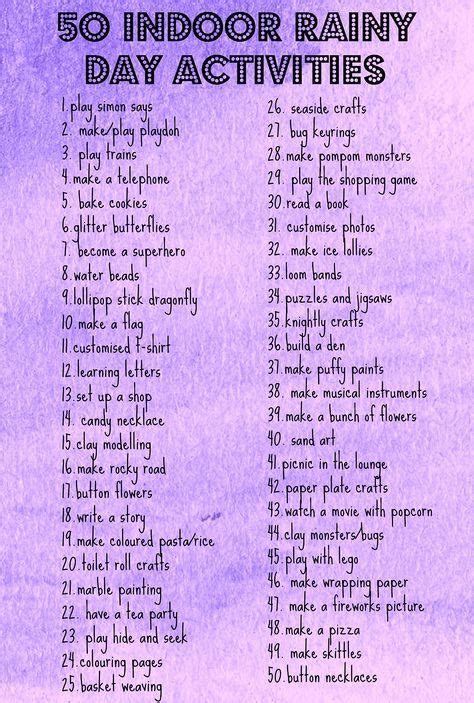 50 INDOOR RAINY
DAY ACTIVITIES
1.play simon says
2. make/play playdoh
3. play trains
4.make a telephone
5. bake cookies
6.glitter butterflies
7. become a superhero
8.water beads
9.lollipop stick dragonfly
10.make a flag
11.customised t-shirt
12.learning letters
13.set up a shop
14. candy necklace
15.clay modelling
16.make rocky road
17.button flowers
18.write a story
19.make coloured pasta/rice
20.toilet roll crafts
21.marble painting
22. have a tea party
23. play hide and seek
24.colouring pages
25.basket weaving
26. seaside crafts
27. bug keyrings
28.make pompom monsters
29. play the shopping game
30.read a book
31. customise photos
32. make ice lollies
33.loom bands
34.puzzles and jigsaws
35.knightly crafts
36.build a den
37.make puffy paints
38. make musical instruments
39.make a bunch of flowers
40. sand art
41.picnic in the lounge
42.paper plate crafts
43.watch a movie with popcorn
44.clay monsters/bugs
45.play with lego
46. make wrapping paper
47. make a fireworks picture
48.make a pizza
49. make skittles
50.button necklaces